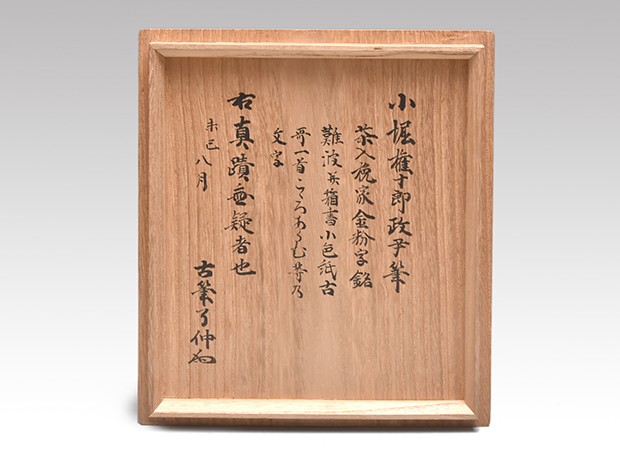 小堀權十郎政尹筆
茶入挽家金粉字銘
難波并箱書小色紙古
哥一首こゝろあらむ等乃
文字
右真蹟無疑者也
八月
古筆了仲